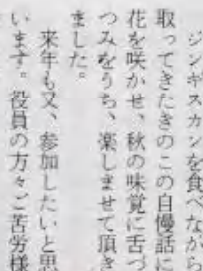 ジンギスカンを食べながら
取ってきたきのこの自慢話に
花を咲かせ、秋の味覚に舌づ
つみをうち、楽しませて頂き
ました。
来年も又、参加したいと思
います。役員の方々ご苦労様